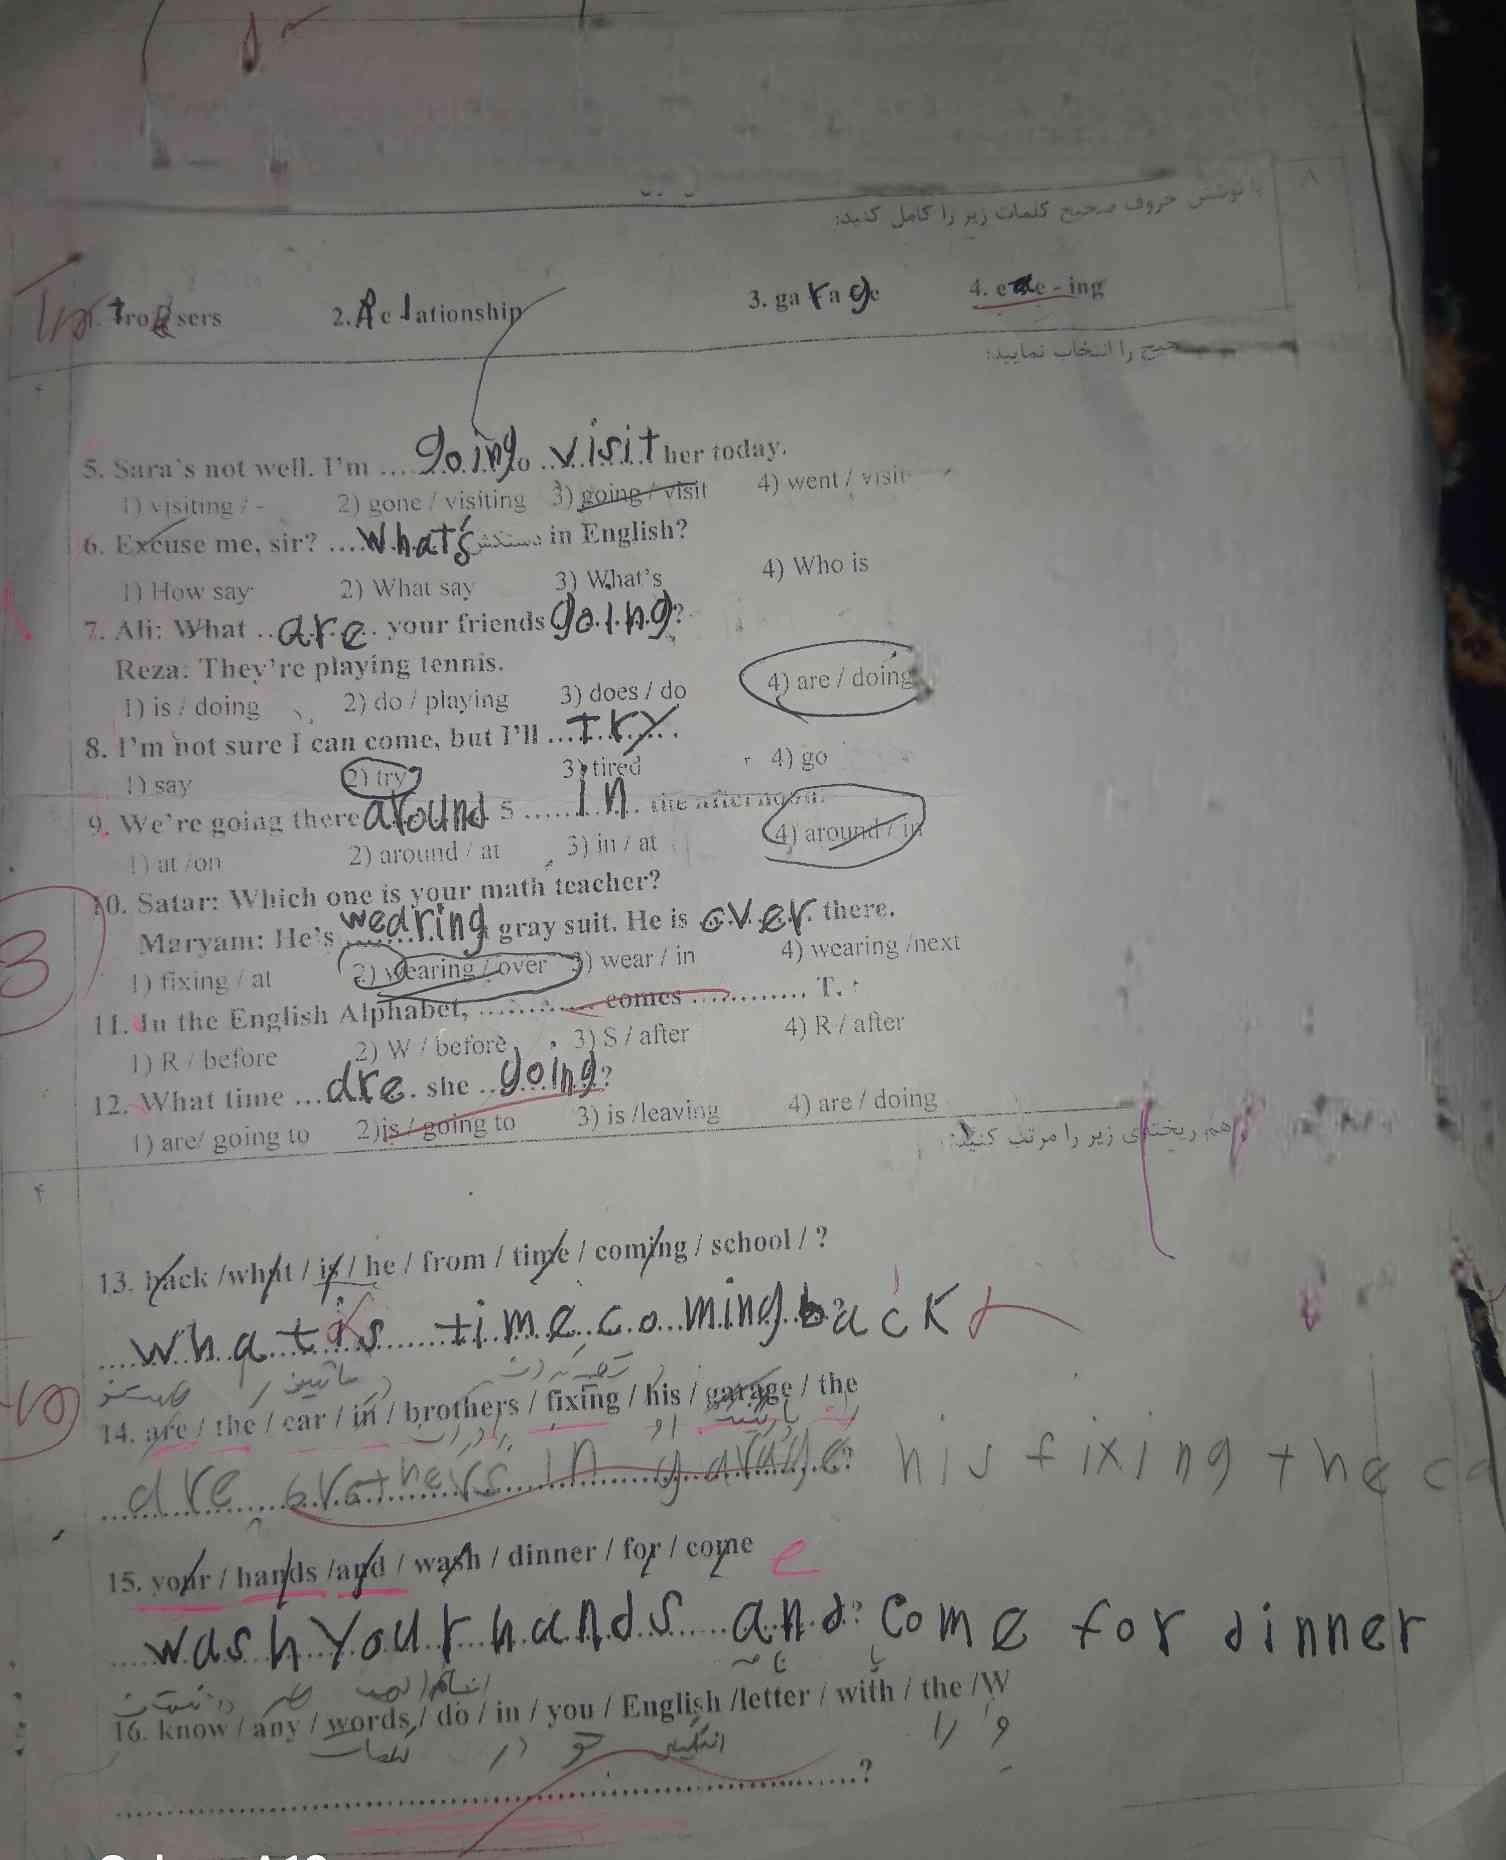 با نوشتن حروف صحیح کلمات زیر را کامل کنید:
۸
Tro sers 2. Relationship 3. garage 4. e e - ing
حیح را انتخاب نمایید:
5. Sara's not well. I'm .... going to visit her today.
1) visiting / - 2) gone / visiting 3) going / visit 4) went / visit
6. Excuse me, sir? ....What's دستکش in English?
1) How say 2) What say 3) What's 4) Who is
7. Ali: What ..are.. your friends going?
Reza: They're playing tennis.
1) is / doing 2) do / playing 3) does / do 4) are / doing
8. I'm not sure I can come, but I'll ...try....
1) say 2) try 3) tired 4) go
9. We're going there around 5 ....in.... the afternoon.
1) at /on 2) around / at 3) in / at 4) around / in
10. Satar: Which one is your math teacher?
Maryam: He's wearing gray suit. He is over there.
1) fixing / at 2) wearing / over 3) wear / in 4) wearing /next
3
11. In the English Alphabet, ............ comes ............ T.
1) R / before 2) W / before 3) S / after 4) R / after
12. What time ...are. she ..going?
1) are/ going to 2)is / going to 3) is /leaving 4) are / doing
هم ریخته‌ی زیر را مرتب کنید:
۴
13. back /what / is / he / from / time / coming / school / ?
what is time coming back
14. are / the / car / in / brothers / fixing / his / garage / the
are brothers in garage his fixing the ca
15. your / hands /and / wash / dinner / for / come
wash your hands and? come for dinner
16. know / any / words / do / in / you / English /letter / with / the /W
کلمات در تو را و
............?